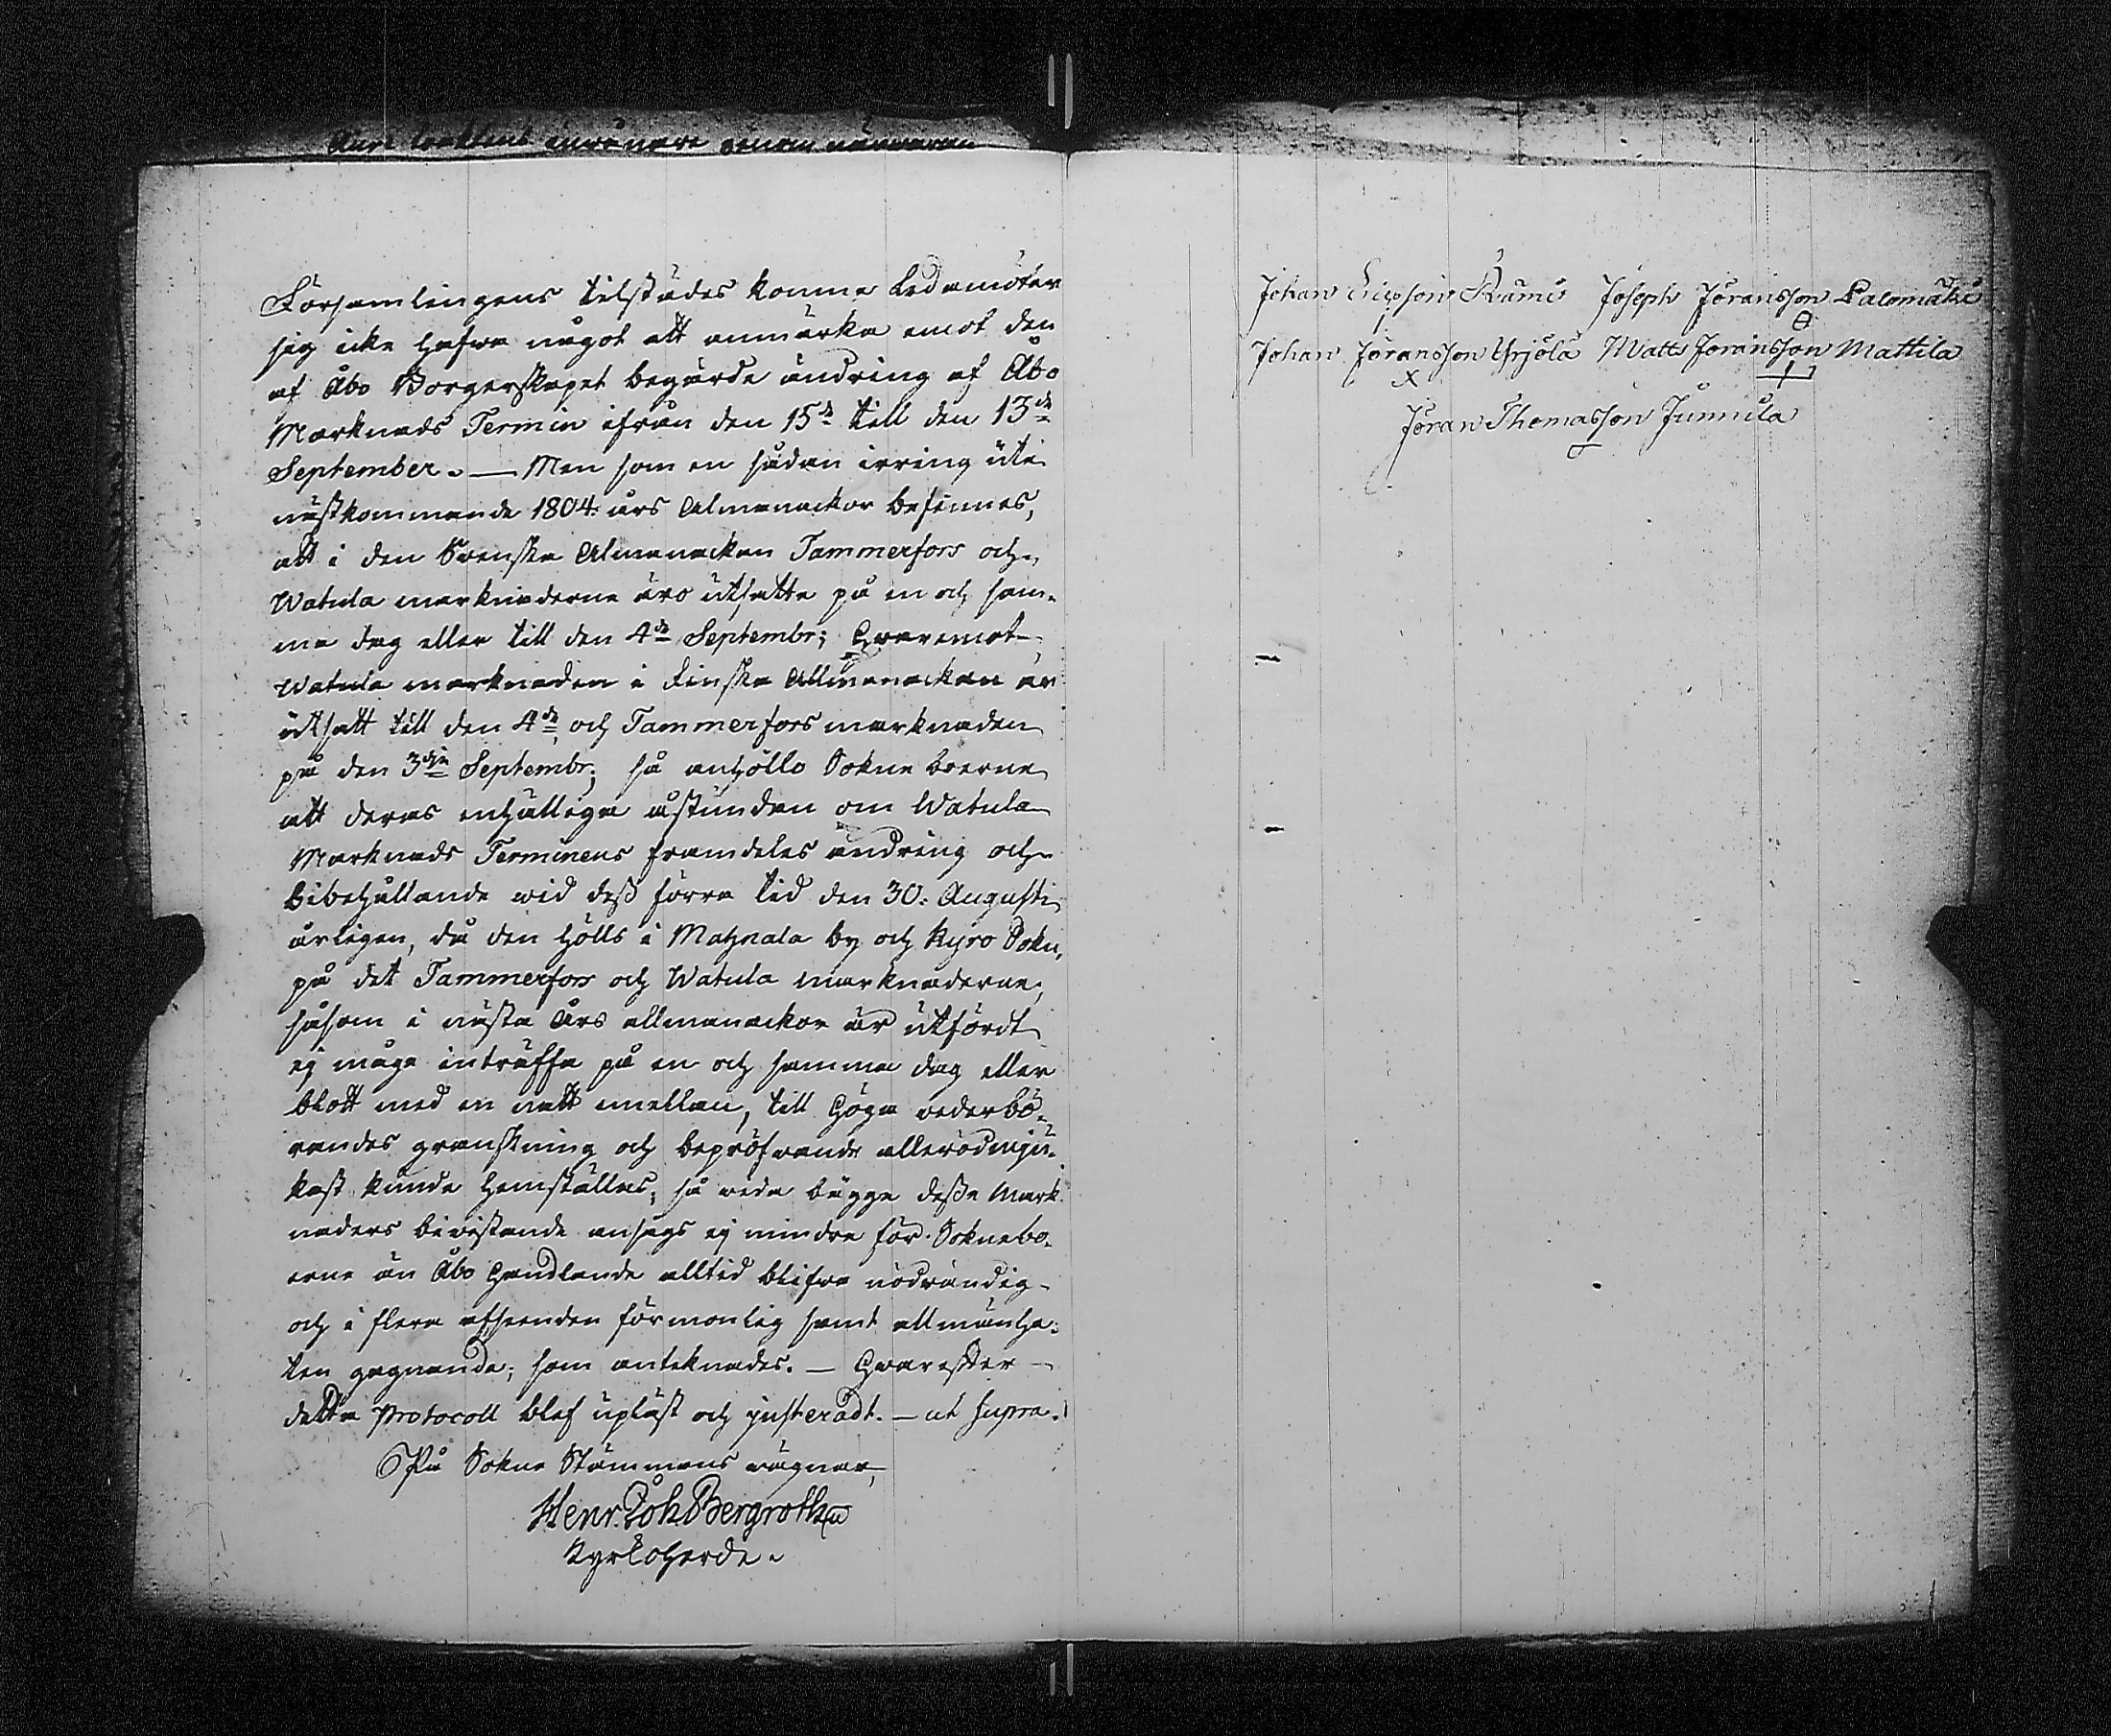 Församlingens tilstädes komne Ledamöter
sig icke hafva något att anmärka emot den
af Åbo Borgerskapet begärde ändring af Åbo
Marknads Termin ifrån den 15de till den 13de
September. — Men som en sådan irring uti
nästkommande 1804: års Almanackor befinnes,
att i den Svenska Almanackan Tammerfors och
Watula marknaderne äro utsatte på en och sam-
ma dag eller till den 4de Septembr; hvaremot
Watula marknaden i Finska Allmanackan är
utsatt till den 4de, och Tammerfors marknaden
på den 3dje Septembr; så anhöllo Sokneboerne
att deras enhälliga åstundan om Watula
Marknads Terminens framdeles ändring och
bibehållande wid dess förra tid den 30: Augusti
årligen, då den hölls i Mahnala by och Kyro Sokn,
på det Tammerfors och Watula marknaderne,
såsom i nästa Års allmanackor är utfördt
ej måge inträffa på en och samma dag eller
blott med en natt emellan, till Höga vederbö-
randes granskning och bepröfvande allerödmju-
kast kunde hemställas; så vida bägge desse Mark-
naders bivistande ansågs ej mindre för Soknebo-
erne än Åbo Handlande alltid blifva nödvändig
och i flera afseenden förmonlig samt allmänhe-
ten gagnande; som anteknades. — Hvarefter
detta Protocoll blef upläst och justeradt. — ut supra.
På Sokne Stämmans vägnar,
Henr. Joh Bergroth
Kyrkoherde.
Johan Ericsson Rämi Joseph Jöransson Palomäki
Johan Jöransson Yrjölä Matts Jöransson Mattila
X
Jöran Thomasson Junnila